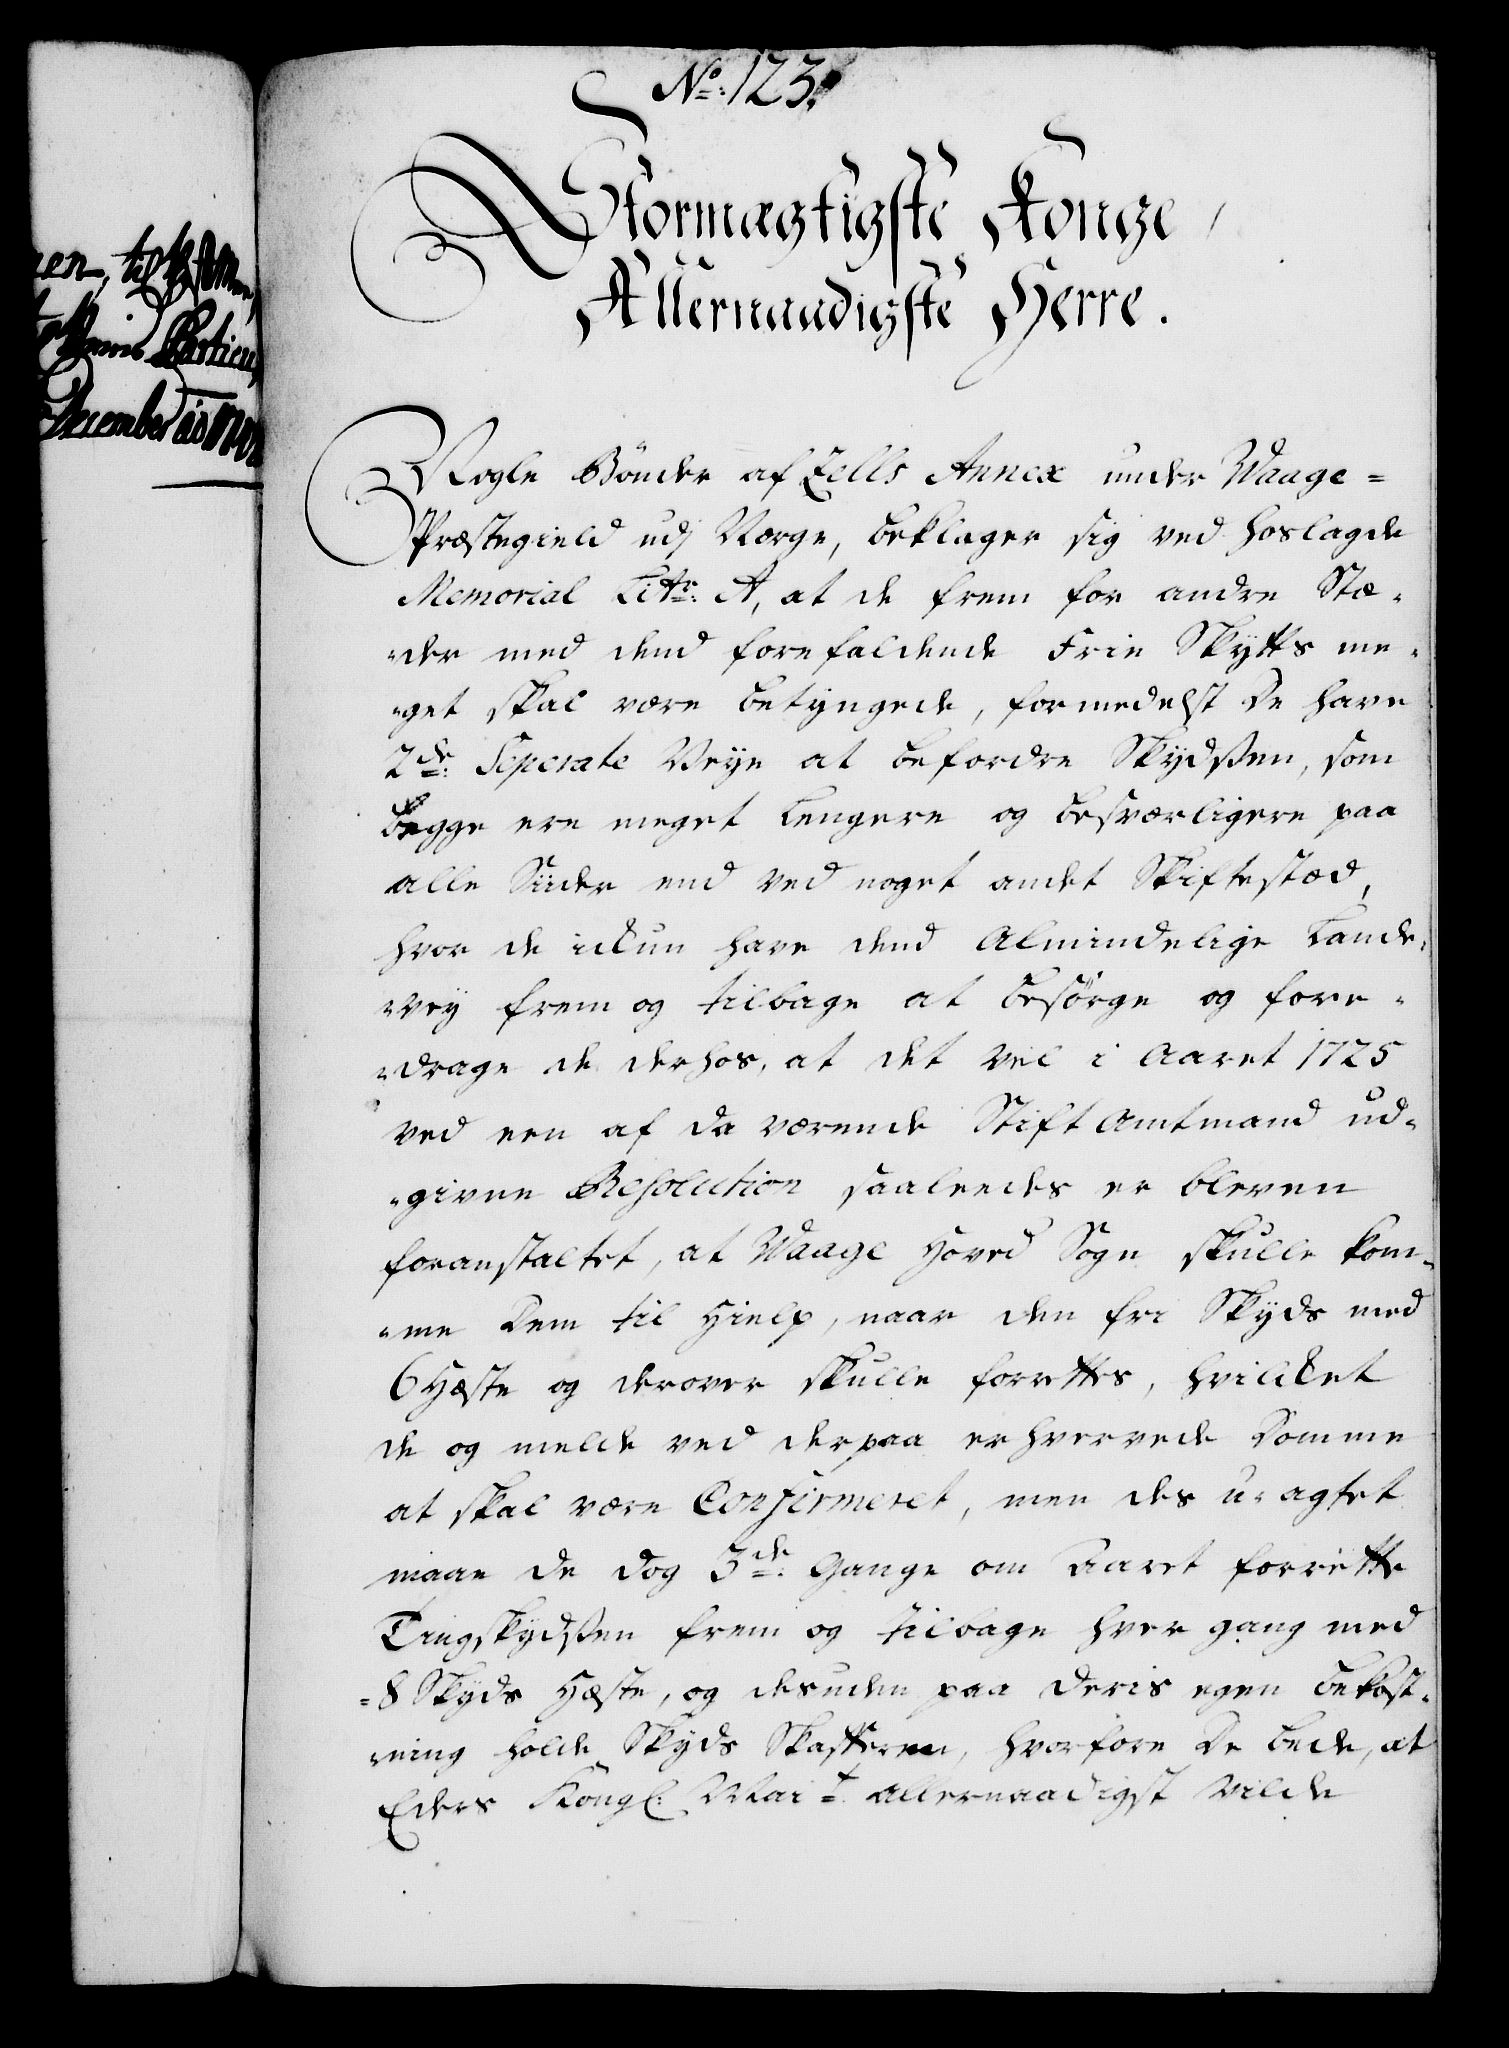 No: 123.
Stormægtigste Konge,
Allernaadigste Herre.
Nogle Bönder af Zells Annex under Waage=
Præstegield udj Norge, beklager sig ved hoslagde
Memorial Litr: A, at de frem for andre Stæ-
-der med dend forefaldende Frie Skytts me-
-get skal være betyngede, formedelst de have
2de: Seperate Veye at befordre Skydssen, som
begge ere meget Lengere og besværligere paa
alle Siider end ved noget andet Skiftestæd,
hvor de ickun have dend Almindelige Lande-
-vey frem og tilbage at besörge og fore-
-drage de derhos, at det vel i Aaret 1725
ved een af da værende Stift Amtmand ud-
-givne Resolution saaleedes er bleven
foranstaltet, at Waage Hoved Sogn skulle kom-
-me dem til Hielp, naar den fri Skyds med
6 Hæste og derover skulle forrettes, hvilcket
de og melde ved derpaa erhvervede Domme
at skal være Confirmeret, men des u-agtet
maae de dog 3de: Gange om Aaret forrette
Tingskydssen frem og tilbage hver gang med
-8 Skyds Hæste, og desuden paa deris egen bekost-
-ning holde Skyds Skafferen, hvorfore de bede, at
Eders Kongl: Mait: allernaadigst vilde
December